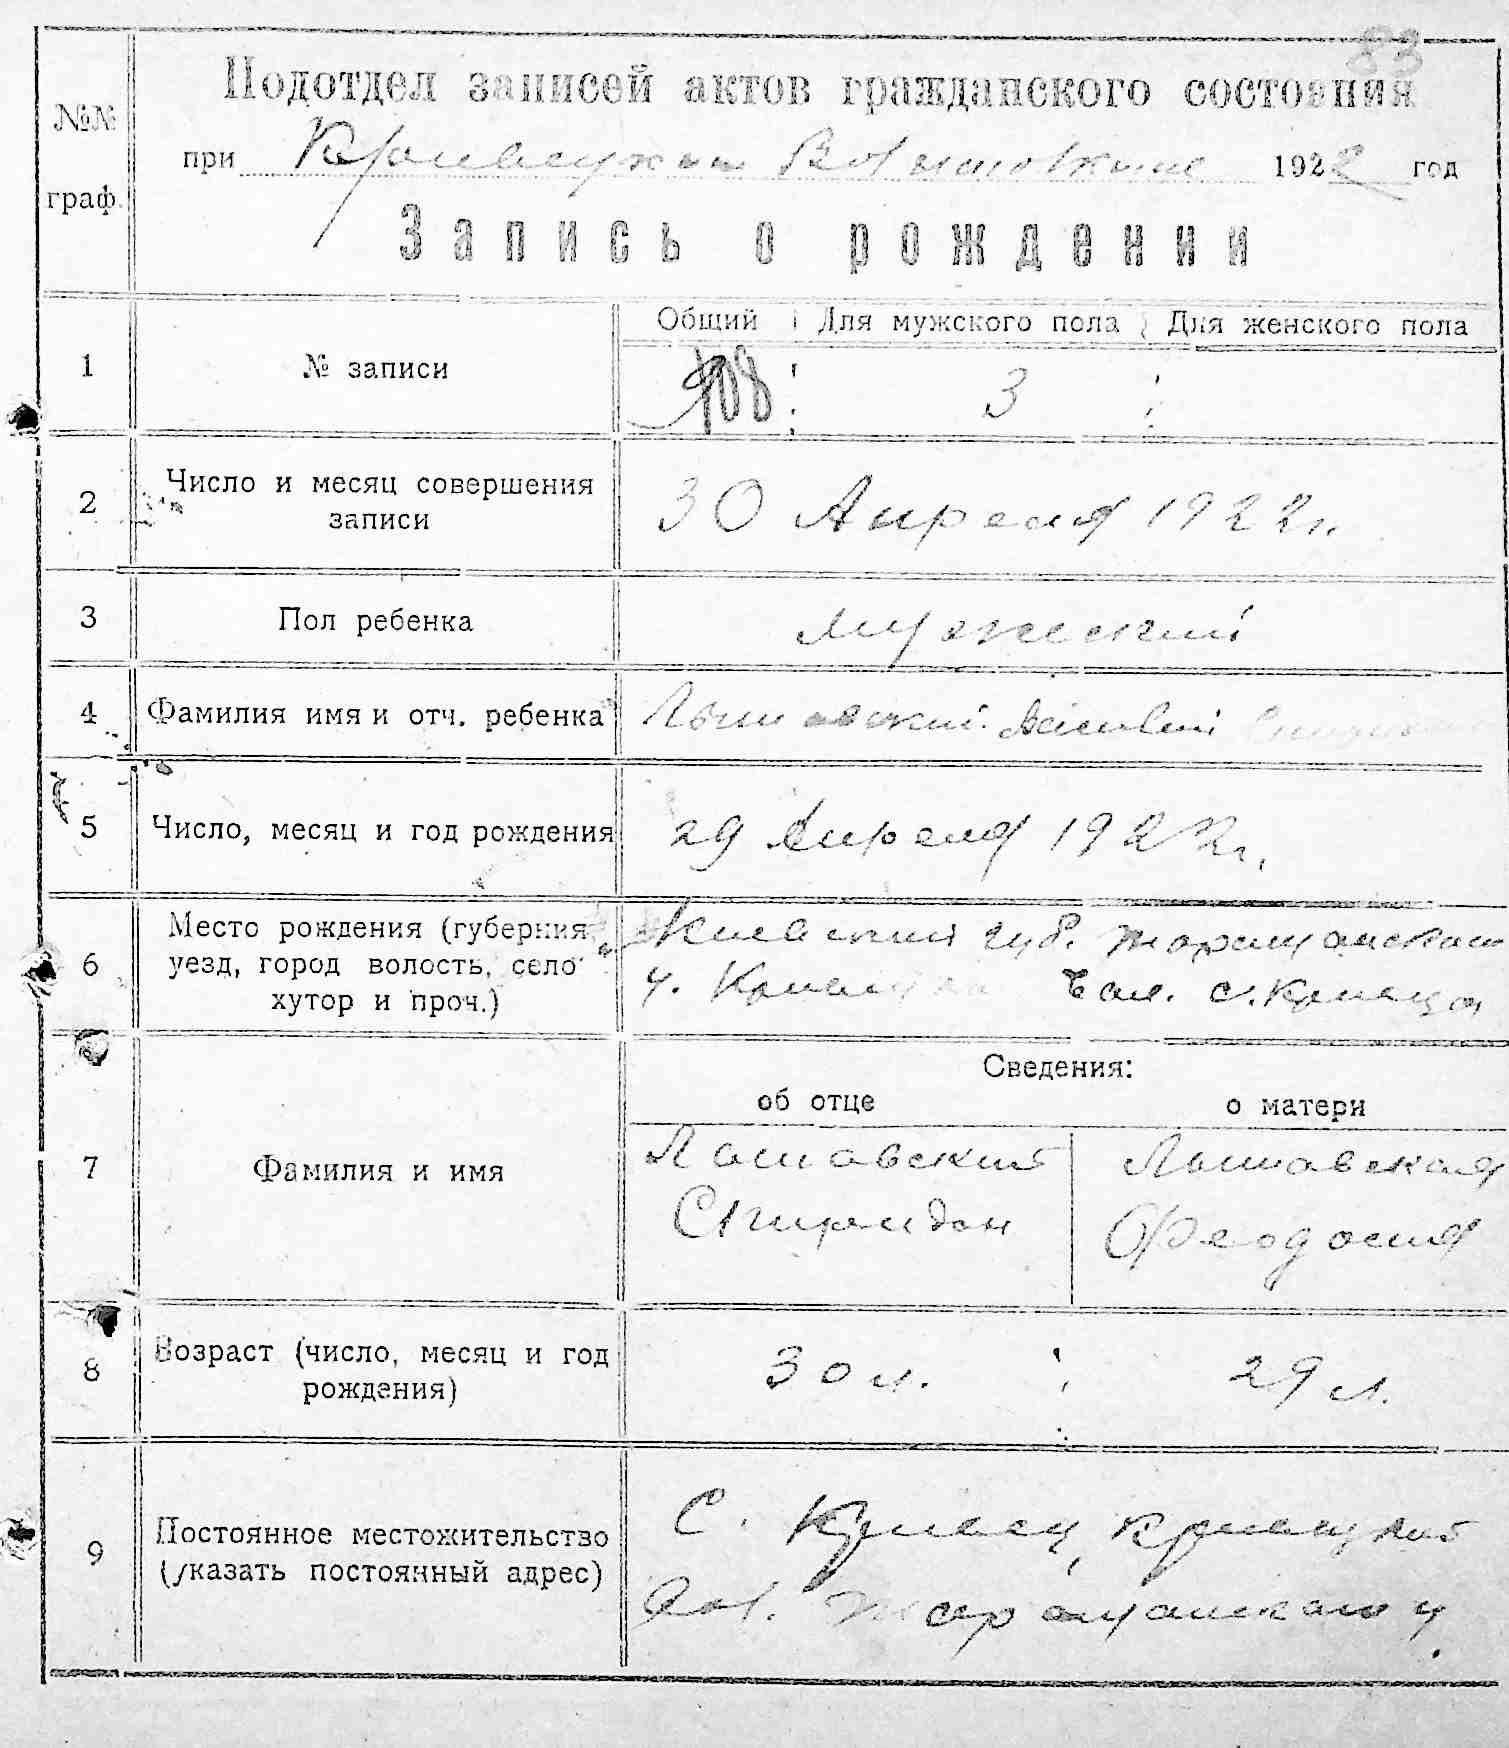 83
№№ граф.
Подотдел записей актов гражданского состояния
при 1922 год
Запись о рождении
Общий Для мужского пола Для женского пола
1 № записи 108 3
2 Число и месяц совершения записи 30 Апреля 1922 г.
3 Пол ребенка мужеский
4 Фамилия имя и отч. ребенка
5 Число, месяц и год рождения 29 Апреля 1922 г.
6 Место рождения (губерния уезд, город волость, село хутор и проч.) Киевский губ. Таращанского
у. вол. с.
Сведения:
об отце о матери
7 Фамилия и имя
Спиридон Феодосия
8 Возраст (число, месяц и год рождения) 30 л. 29 л.
9 Постоянное местожительство (указать постоянный адрес) С.
Таращанского у.